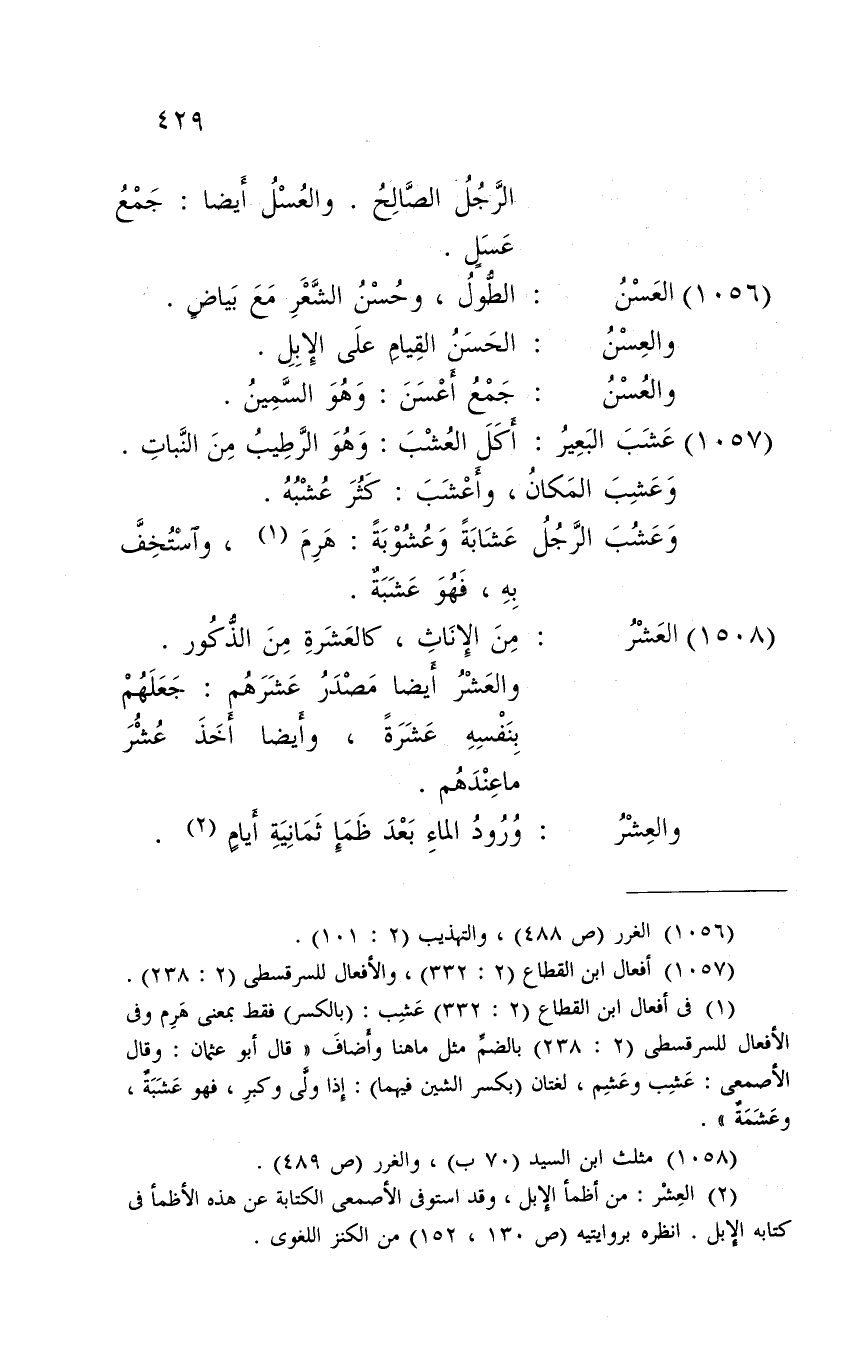 ٤٢٩
الرَّجُلُ الصَّالِحُ . والعُسْلُ أَيضا : جَمْعُ
عَسَلٍ .
(١٠٥٦) العَسْنُ : الطُّولُ ، وحُسْنُ الشَّعْرِ مَعَ بَياضٍ .
والعِسْنُ : الحَسَنُ القِيامِ علَى الإِبِلِ .
والعُسْنُ : جَمْعُ أَعْسَنَ : وَهُوَ السَّمِينُ .
(١٠٥٧) عَشَبَ البَعِيرُ : أَكَلَ العُشْبَ : وَهُوَ الرَّطِيبُ مِنَ النَّباتِ .
وَعَشِبَ المَكانُ ، وأَعْشَبَ : كَثُرَ عُشْبُهُ .
وَعَشُبَ الرَّجُلُ عَشَابَةً وَعُشُوْبَةً : هَرِمَ (١) ، وٱسْتُخِفَّ
بِهِ ، فَهُوَ عَشَبَةٌ .
(١٥٠٨) العَشْرُ : مِنَ الإِنَاثِ ، كالعَشَرةِ مِنَ الذُّكُور .
والعَشْرُ أَيضا مَصْدَرُ عَشَرَهُم : جَعَلَهُمْ
بِنَفْسِهِ عَشَرَةً ، وأَيضا أَخَذَ عُشْرَ
ماعِنْدَهُم .
والعِشْرُ : وُرُودُ الماءِ بَعْدَ ظَمَإِ ثَمَانِيَةِ أَيامٍ (٢) .
(١٠٥٦) الغرر (ص ٤٨٨) ، والتهذيب (٢ : ١٠١) .
(١٠٥٧) أفعال ابن القطاع (٢ : ٣٣٢) ، والأفعال للسرقسطى (٢ : ٢٣٨) .
(١) فى أفعال ابن القطاع (٢ : ٣٣٢) عَشِب : (بالكسر) فقط بمعنى هَرِم وفى
الأفعال للسرقسطى (٢ : ٢٣٨) بالضمِّ مثل ماهنا وأَضافَ « قال أبو عثمان : وقال
الأصمعى : عَشِب وعَشِم ، لغتان (بكسر الشين فيهما) : إِذا ولَّى وكبرِ ، فهو عَشَبَةٌ ،
وعَشَمَةٌ » .
(١٠٥٨) مثلث ابن السيد (٧٠ ب) ، والغرر (ص ٤٨٩) .
(٢) العِشْر : من أظمأ الإِبل ، وقد استوفى الأصمعى الكتابة عن هذه الأظمأ فى
كتابه الإِبل . انظره بروايتيه (ص ١٣٠ ، ١٥٢) من الكنز اللغوى .